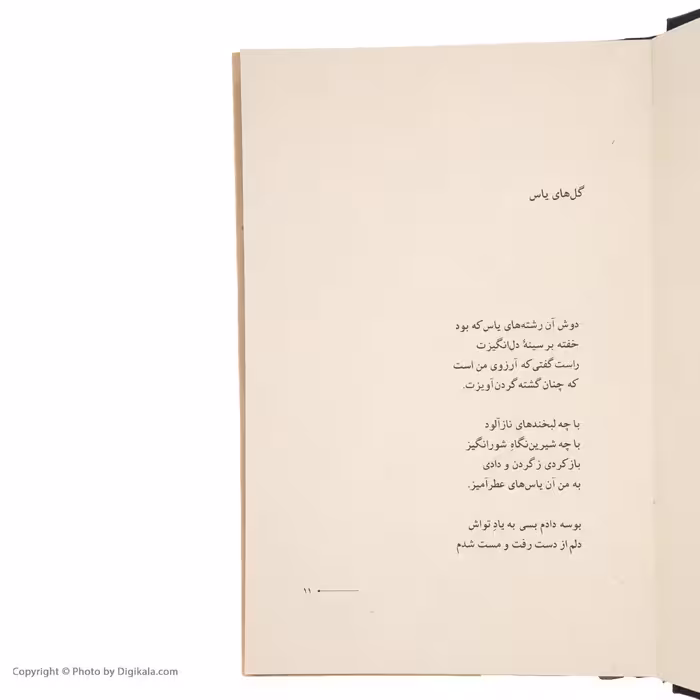 گل‌های یاس
دوش آن رشته‌های یاس که بود
خفته بر سینهٔ دل‌انگیزت
راست گفتی که آرزوی من است
که چنان گشته گردن‌آویزت.
با چه لبخندهای نازآلود
با چه شیرین‌نگاهِ شورانگیز
باز کردی ز گردن و دادی
به من آن یاس‌های عطرآمیز.
بوسه دادم بسی به یادِ تواش
دلم از دست رفت و مست شدم
۱۱
Copyright © Photo by Digikala.com